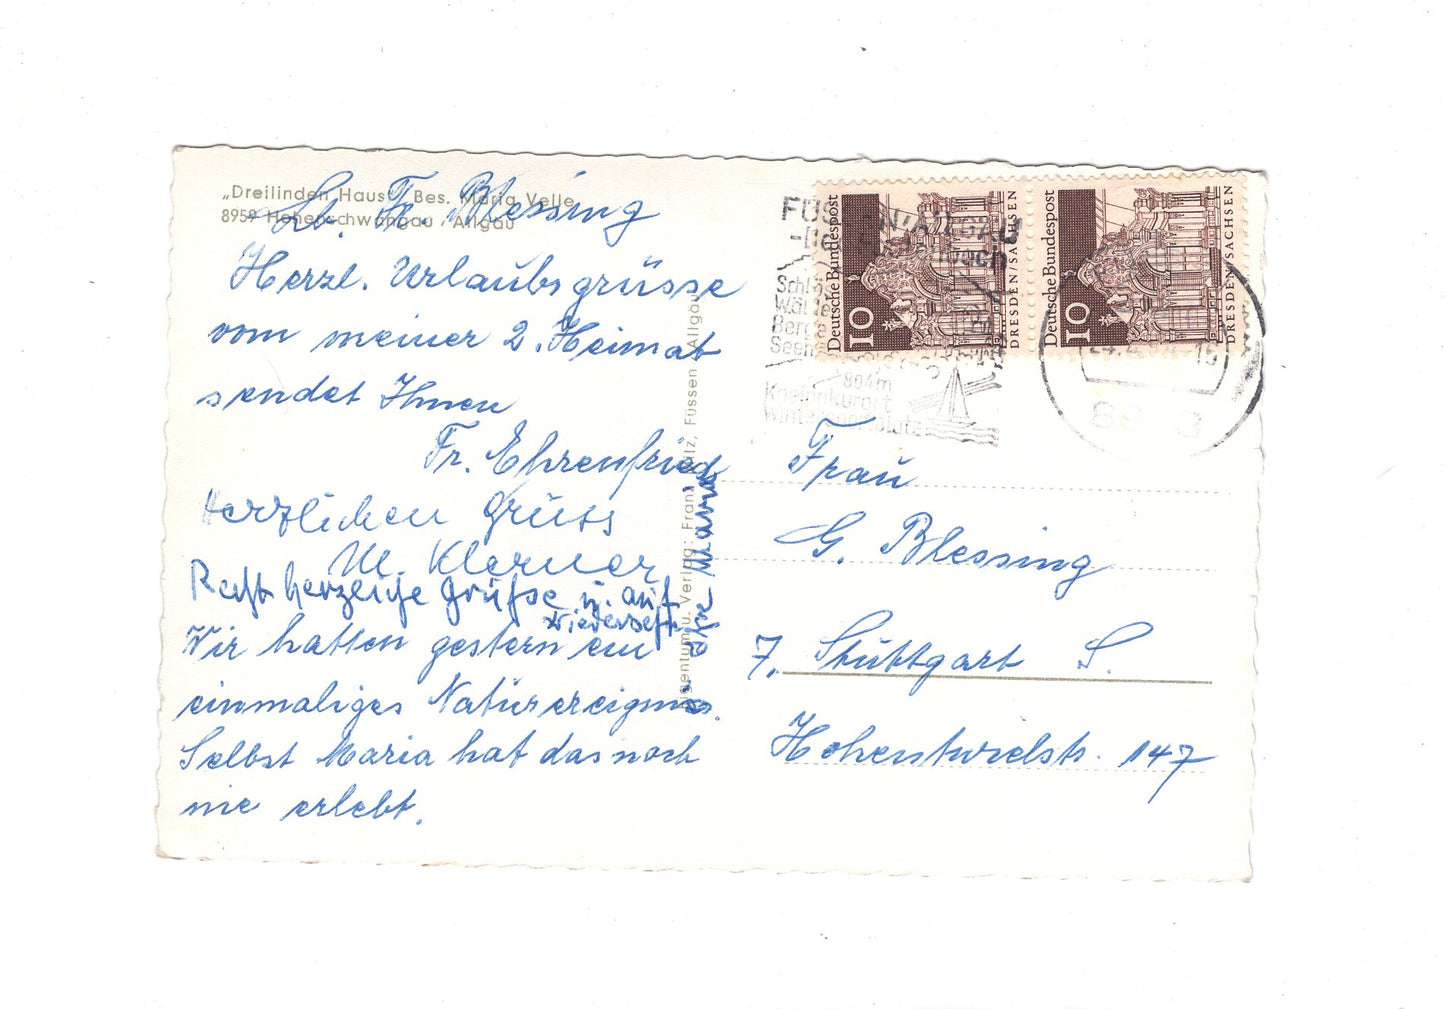 „Dreilinden Haus“, Bes. Maria Velle
8959 Hohenschwangau / Allgäu
Lb. Fr. Blessing
Herzl. Urlaubsgrüsse
vom meiner 2. Heimat
sendet Ihnen
Fr. Ehrenfried
Herzlichen Grüss
M. Klerner
Recht herzliche Grüße u. auf
wiederseh.
Ihre Maria
Wir hatten gestern ein
einmaliges Naturereignis.
Selbst Maria hat das noch
nie erlebt.
Eigentum u. Verlag: Franz Milz, Füssen - Allgäu
FÜSSEN/ALLGÄU
Schlö
Wälde
Berge
Seen
804m
Kneippkurort
Wintersportplatz
10
Deutsche Bundespost
DRESDEN/SACHSEN
10
Deutsche Bundespost
DRESDEN/SACHSEN
Frau
G. Blessing
7. Stuttgart S.
Hohentwielstr. 147